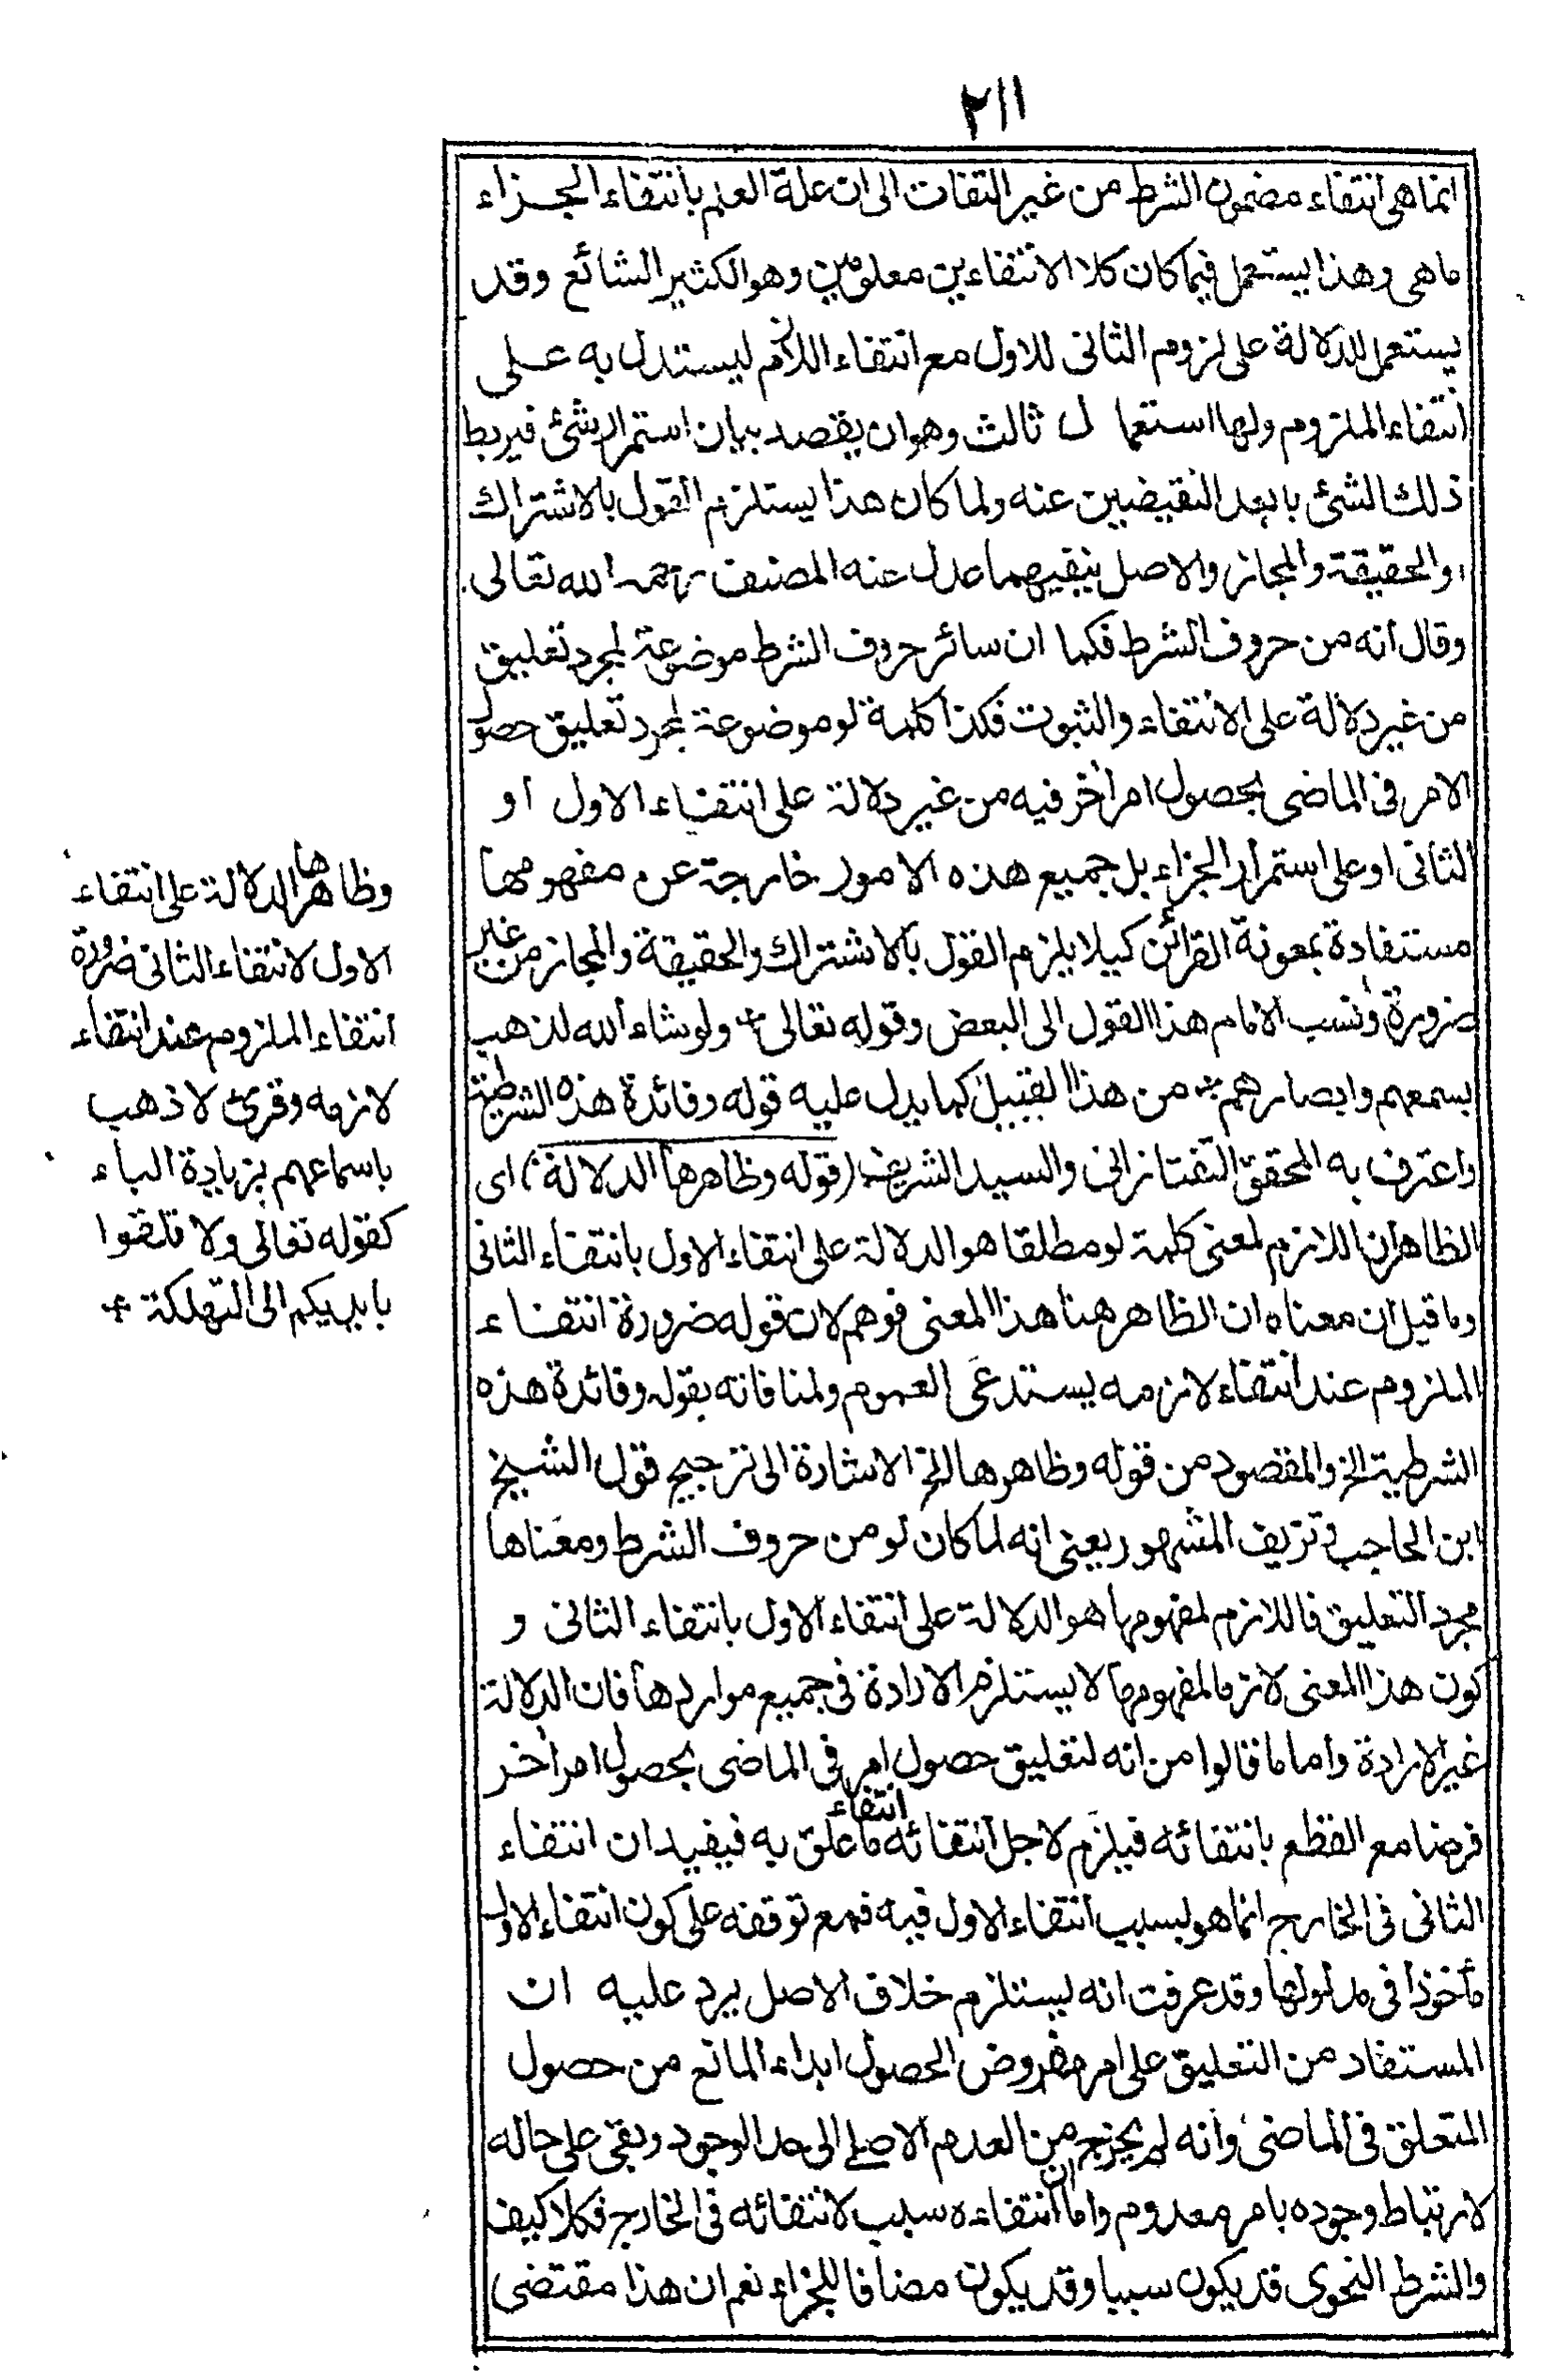 ٢١١
انما هى انتفاء مضمون الشرط من غير التفات الى ان علة العلم بانتفاء الجزاء
ماهى وهذا يستعمل فيما كان كلا الانتفاءين معلومين وهو الكثير الشائع وقد
يستعمل للدلالة على لزوم الثانى للاول مع انتفاء اللازم ليستدل به على
انتفاء الملزوم ولها استعمال ثالث وهو ان يقصد بيان استمرار شئ فيربط
ذلك الشئ بابعد النقيضين عنه ولما كان هذا يستلزم القول بالاشتراك
او الحقيقة والمجاز والاصل ينفيهما عدل عنه المصنف رحمه الله تعالى
وقال انه من حروف الشرط فكما ان سائر حروف الشرط موضوعة لمجرد تعليق
من غير دلالة على الانتفاء والثبوت فكذا كلمة لو موضوعة لمجرد تعليق حصول
الامر فى الماضى بحصول امر اخر فيه من غير دلالة على انتفاء الاول او
الثانى او على استمرار الجزاء بل جميع هذه الامور خارجة عن مفهومها
مستفادة بمعونة القرائن كيلا يلزم القول بالاشتراك والحقيقة والمجاز من غير
ضرورة ونسب الامام هذا القول الى البعض وقوله تعالى ولو شاء الله لذهب
بسمعهم وابصارهم من هذا القبيل كما يدل عليه قوله وفائدة هذه الشرطية
واعترف به المحقق التفتازانى والسيد الشريف (قوله وظاهرها الدلالة) اى
الظاهر ان اللازم لمعنى كلمة لو مطلقا هو الدلالة على انتفاء الاول بانتفاء الثانى
وما قيل ان معناه ان الظاهر هنا هذا المعنى فوهم لان قوله ضرورة انتفاء
الملزوم عند انتفاء لازمه يستدعى العموم ولمنافاته بقوله وفائدة هذه
الشرطية الخ والمقصود من قوله وظاهرها الخ الاشارة الى ترجيح قول الشيخ
ابن الحاجب وتزيف المشهور يعنى انه لما كان لو من حروف الشرط ومعناها
مجرد التعليق فاللازم لمفهومها هو الدلالة على انتفاء الاول بانتفاء الثانى و
كون هذا المعنى لازما لمفهومها لا يستلزم الارادة فى جميع مواردها فان الدلالة
غير الارادة واما ما قالوا من انه لتعليق حصول امر فى الماضى بحصول امر اخر
فرضا مع القطع بانتفائه فيلزم لاجل انتفائه انتفاء ما علق به فيفيد ان انتفاء
الثانى فى الخارج انما هو بسبب انتفاء الاول فيه فمع توقفه على كون انتفاء الاول
مأخوذا فى مدلولها وقد عرفت انه يستلزم خلاف الاصل يرد عليه ان
المستفاد من التعليق على امر مفروض الحصول ابداء المانع من حصول
المتعلق فى الماضى وانه لم يخرج من العدم الاصلى الى حد الوجود وبقى على حاله
لارتباط وجوده بامر معدوم واما ان انتفاءه سبب لانتفائه فى الخارج فكلا كيف
والشرط النحوى قد يكون سببا وقد يكون مضافا للجزاء نعم ان هذا مقتضى
وظاهرها الدلالة على انتفاء
الاول لانتفاء الثانى ضرورة
انتفاء الملزوم عند انتفاء
لازمه وقرئ لا ذهب
باسماعهم بزيادة الباء
كقوله تعالى ولا تلقوا
بايديكم الى التهلكة